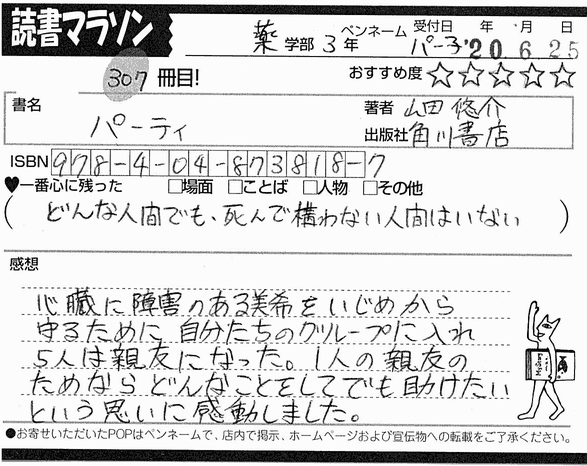 読書マラソン
薬 学部 3 年
ペンネーム パー子
受付日 年 月 日
'20. 6. 25
307 冊目!
おすすめ度 ☆☆☆☆☆
書名 パーティ
著者 山田 悠介
出版社 角川書店
ISBN 978-4-04-873818-7
♥一番心に残った □場面 □ことば □人物 □その他
( どんな人間でも、死んで構わない人間はいない )
感想
心臓に障害のある美希をいじめから
守るために自分たちのグループに入れ
5人は親友になった。1人の親友の
ためならどんなことをしてでも助けたい
という思いに感動しました。
●お寄せいただいたPOPはペンネームで、店内で掲示、ホームページおよび宣伝物への転載をご了承ください。